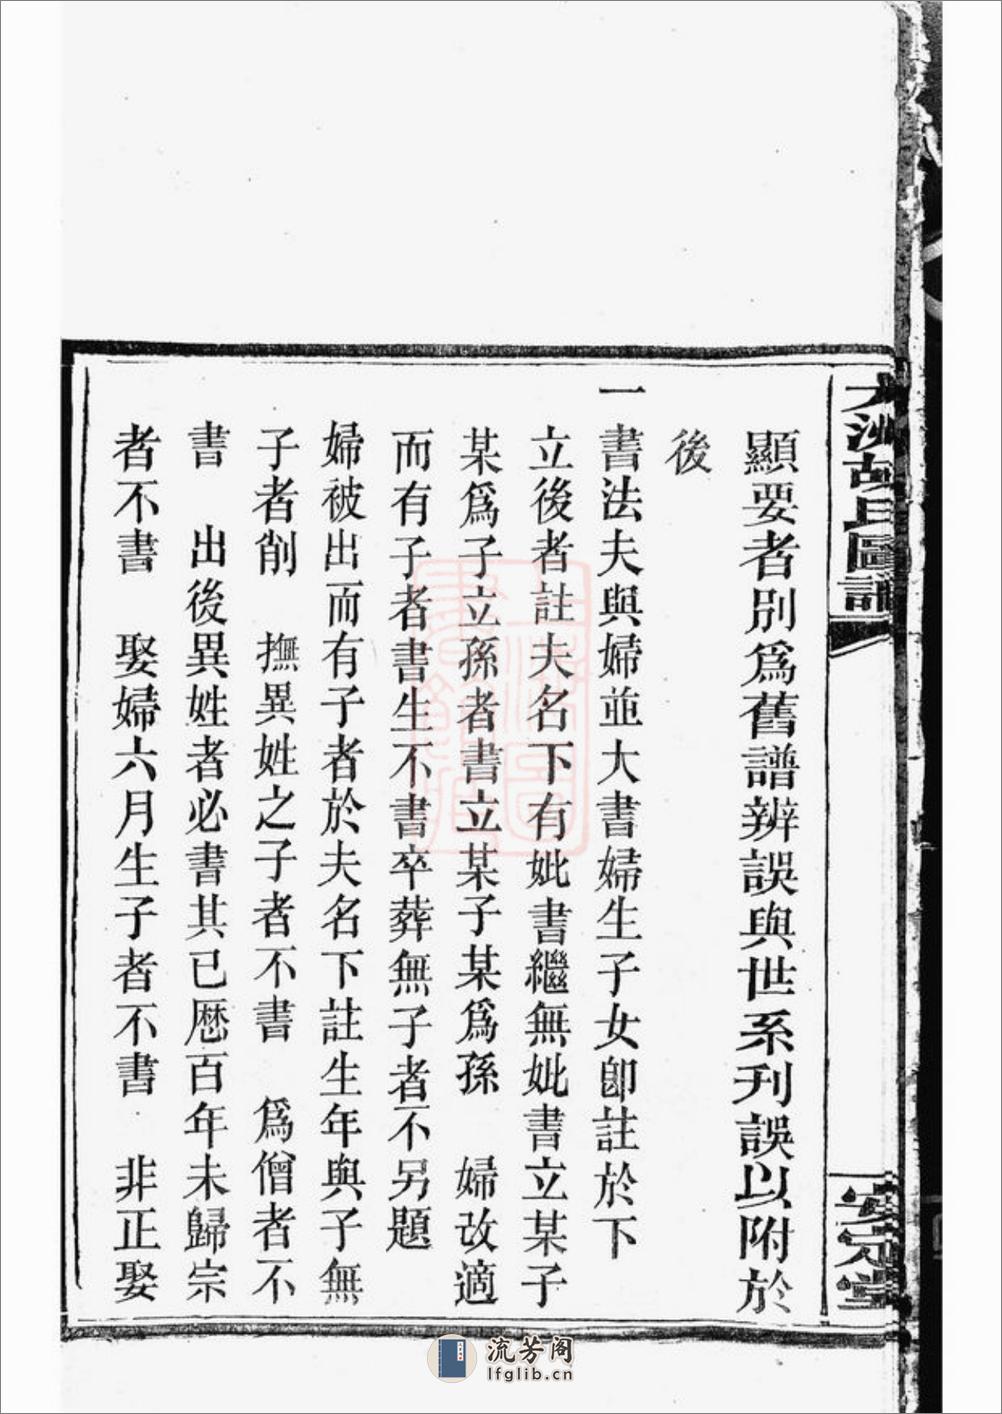 顯要者別爲舊譜辨誤與世系刋誤以附於
後
一書法夫與婦並大書婦生子女卽註於下
立後者註夫名下有妣書繼無妣書立某子
某爲子立孫者書立某子某爲孫　婦改適
而有子者書生不書卒葬無子者不另題
婦被出而有子者於夫名下註生年與子無
子者削　撫異姓之子者不書　爲僧者不
書　出後異姓者必書其已厯百年未歸宗
者不書　娶婦六月生子者不書　非正娶
胡氏圖譜
安定堂
流芳阁
lfglib.cn